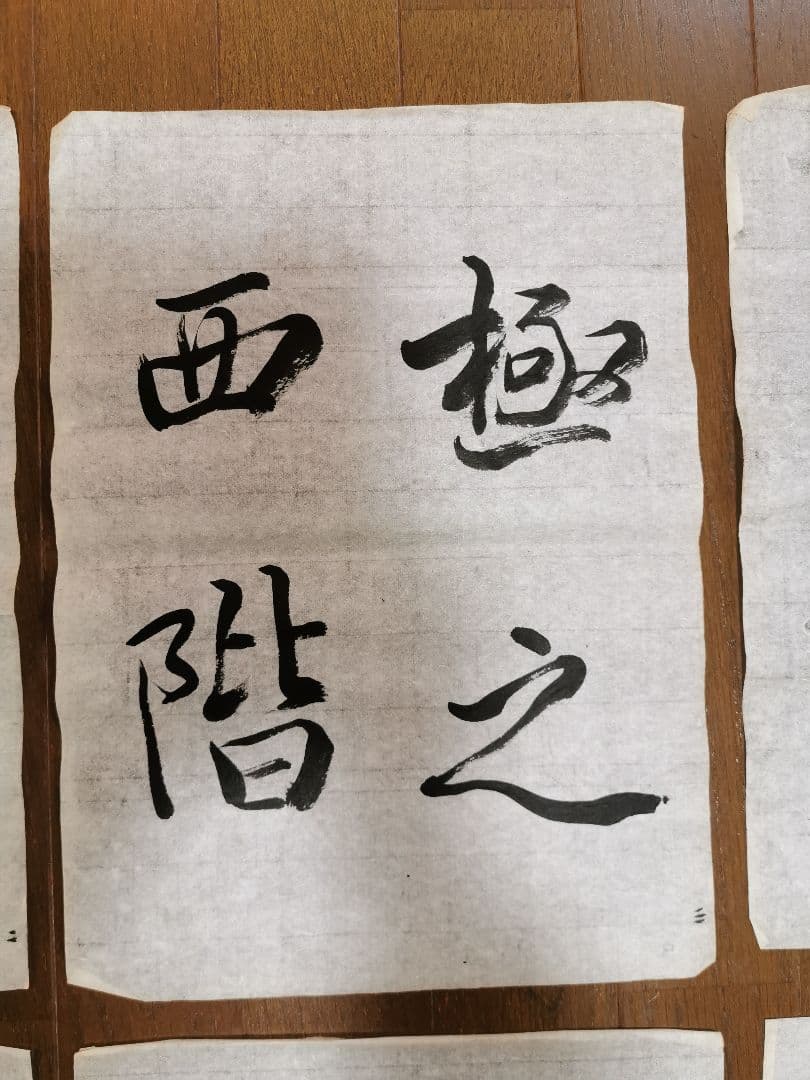 極之
西階
三
二